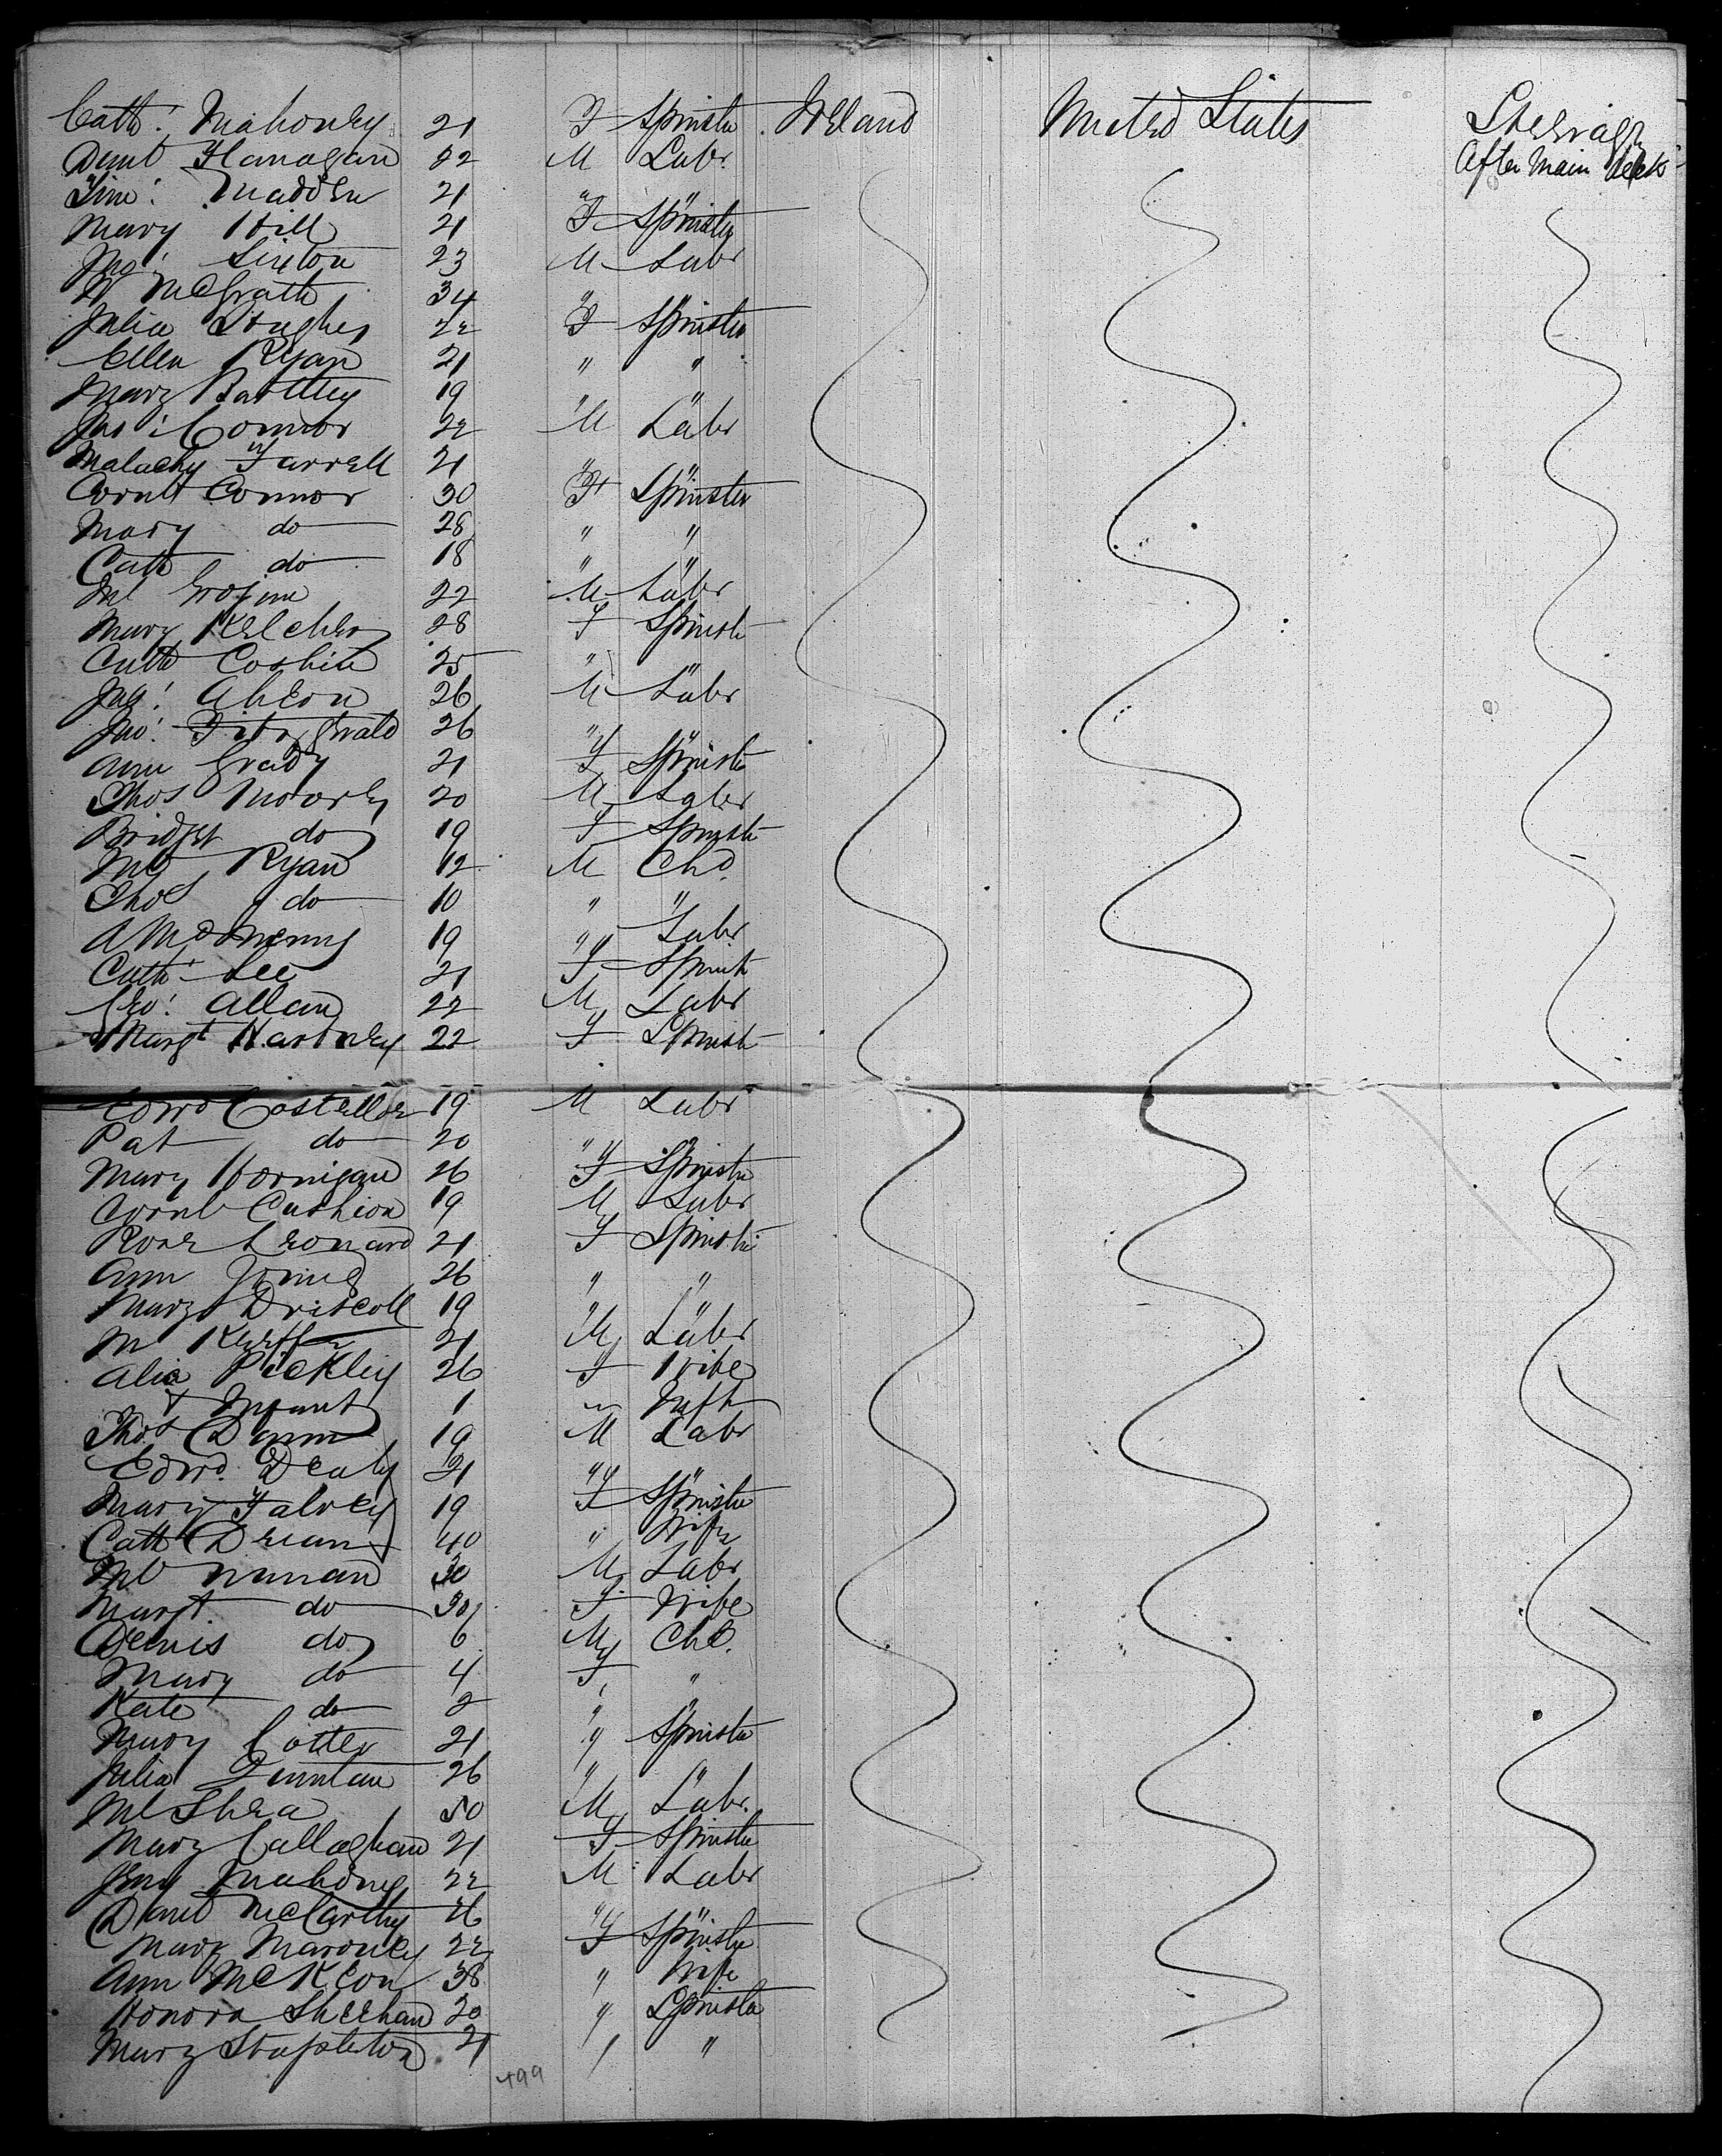 Cath: Mahoney 21 F Spinster Ireland United States Steerage
Danl Flanagan 22 M Labr. After Main deck
Tim: Madden 21 " "
Mary Hill 21 F Spinster
Jno: Sexton 23 M Labr
McGrath 34 " "
Julia Hughes 22 F Spinster
Ellen Ryan 21 " "
Mary Bartley 19 " "
Jno: Connor 22 M Labr
Malachy Farrell 21 " "
Cornl Connor 30 F Spinster
Mary do 28 " "
Cath do 18 " "
Ml 22 M Labr
Mary Kelcher 28 F Spinstr
Cath 25 " "
Jas: Aheon 26 M Labr
Jno: Fitzgerald 26 " "
Ann Grady 21 F Spinstr
Thos 20 M Labr
Bridget do 19 F Spinstr
Ml Ryan 12 M Chd.
Thos do 10 " "
19 " Labr
Cath: Lee 21 F Spinstr
Geo: Allan 22 M Labr
Margt Hartney 22 F Spinstr
Edwd Costelloe 19 M Labr
Pat do 20 " "
Mary Hornigan 26 F Spinster
Cornl Cashion 19 M Labr
Rose Leonard 21 F Spinstr
Ann 26 " "
Mary Driscoll 19 " "
M 21 M Labr
Alic Pickley 26 F Wife
& Infant 1 " Inft
Thos Dunn 19 M Labr
Edwd. Dealy 21 " "
Mary Falvey 19 F Spinster
Cath 40 " Wife
Ml Nunan 30 M Labr
Margt. do 30 F Wife
Denis do 6 M Chd.
Mary do 4 F "
Kate do 2 " "
Mary Cotter 21 " Spinster
Julia Quinlan 26 " "
Ml Shea 50 M Labr.
Mary Callaghan 21 F Spinster
Mahoney 22 M Labr
Danl McCarthy 26 " "
Mary Maroney 22 F Spinster
Ann McKeon 38 " Wife
Honora Sheehan 20 " Spinster
Mary Stapleton 21 " "
499